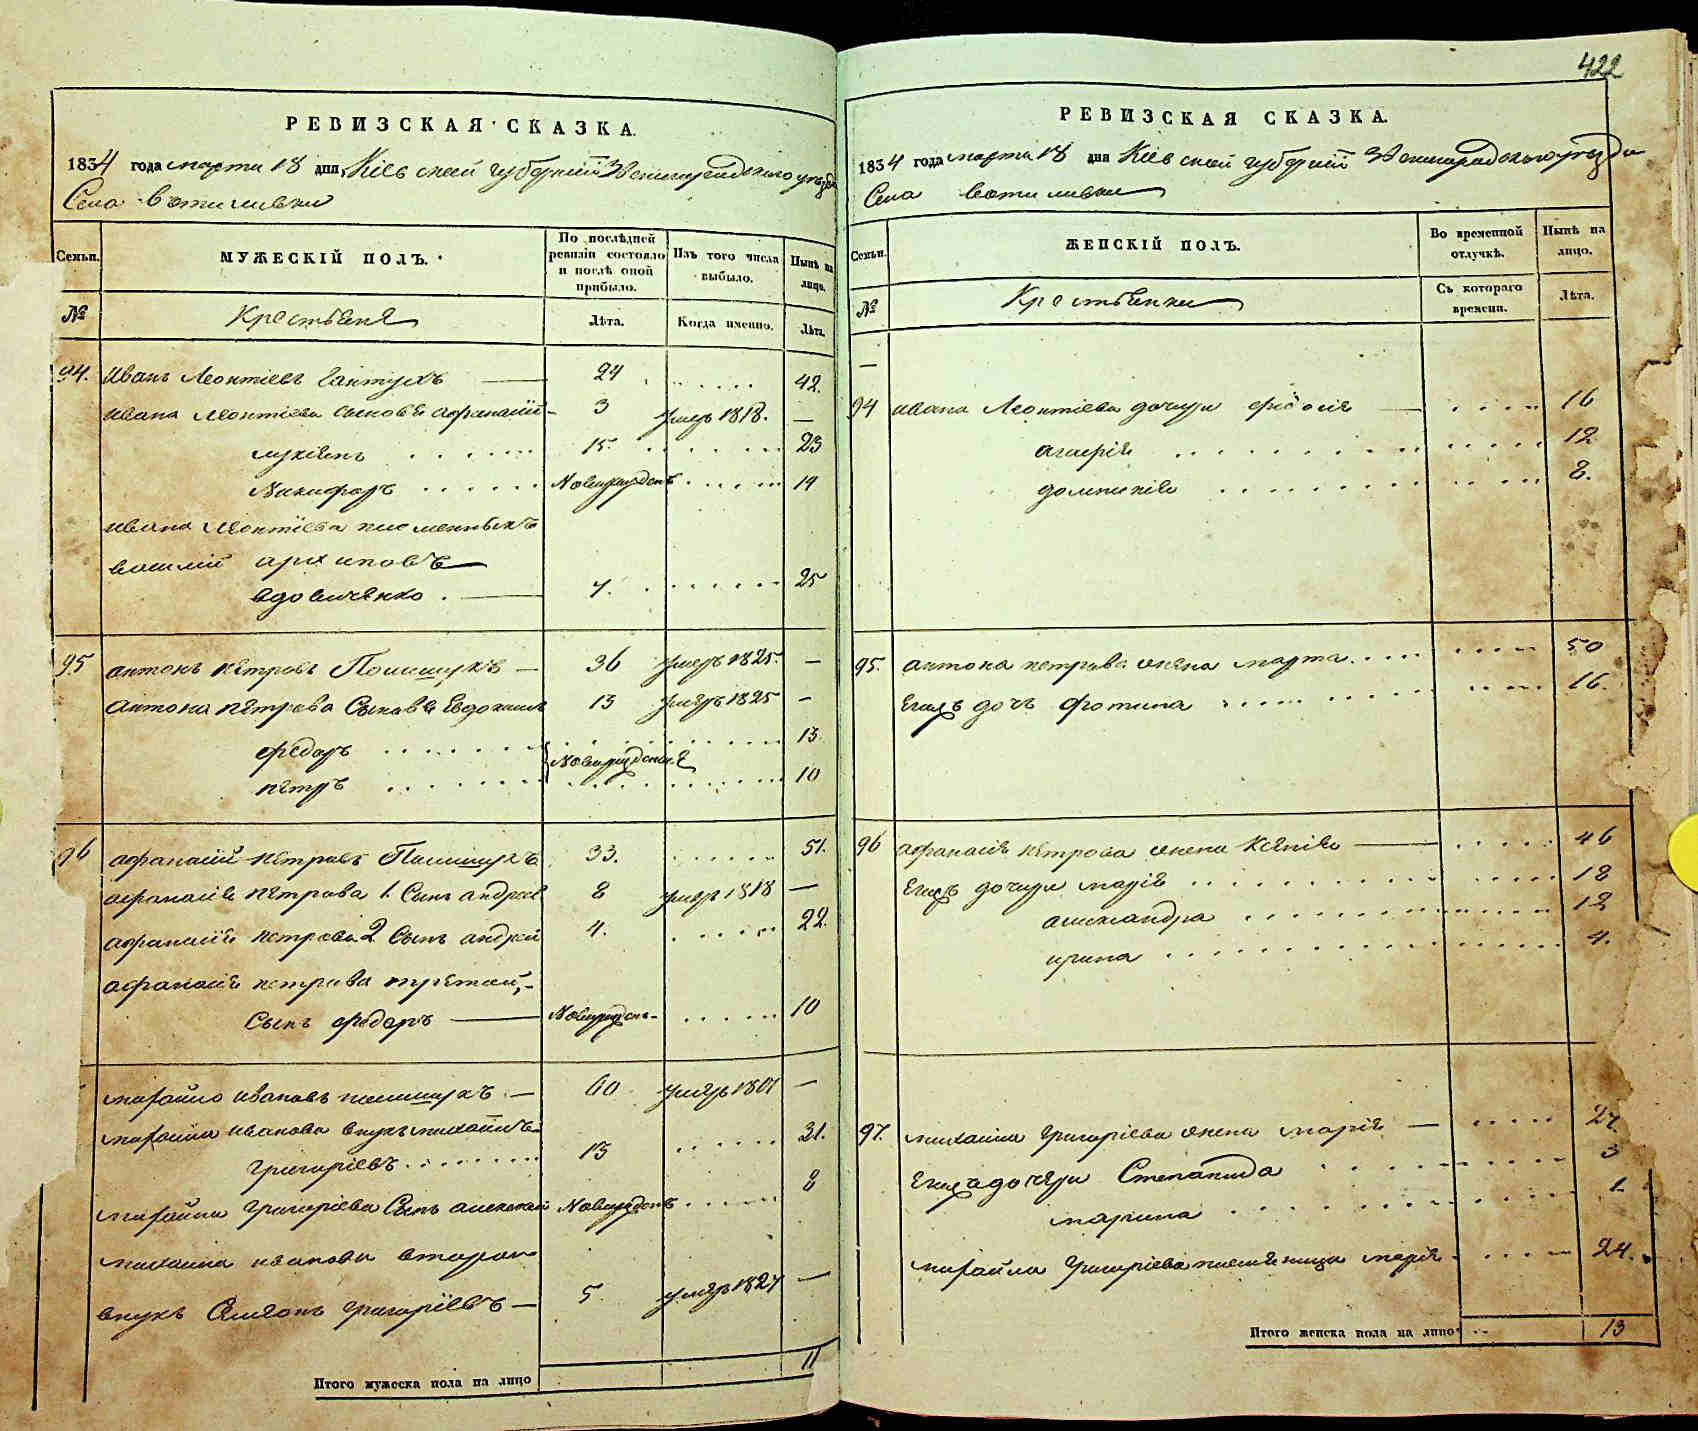 422
РЕВИЗСКАЯ СКАЗКА.
1834 года марта 18 дня Кіевской губерніи Звенигородского уезда
Села
Семьи.
МУЖЕСКІЙ ПОЛЪ.
По послѣдней ревизіи состояло и послѣ оной прибыло.
Изъ того числа выбыло.
Нынѣ на лицо.
№
Крестьяне
Лѣта.
Когда именно.
Лѣта.
94. Иванъ Леонтіевъ 24 42.
Ивана Леонтіева сыновья Афанасій 3 умеръ 1818. —
15. 23
Никифоръ Новорожденъ 14
Ивана Леонтіева
василій архиповъ
вдовиченко 7. 25
95 Антонъ петровъ Полищукъ — 36 умеръ 1825. —
Антона петрова Сыновья Евдоким 13 умеръ 1825 —
федоръ 13
Новорожденые
петръ 10
96 афанасій петровъ Полищукъ 33. 51.
афанасія петрова 1. Сынъ андрей 8 умеръ 1818 —
афанасія петрова 2 Сынъ андрей 4. 22.
афанасія петрова третій
Сынъ федоръ Новорожден 10
михайло Ивановъ полищукъ — 60 умеръ —
михайла Иванова внукъ михайлъ
григоріевъ 13 31.
михайла григоріева Сынъ алексей Новорожденъ 8
михайла иванова второй
внукъ Семіонъ григоріевъ — 5 умеръ 1827 —
Итого мужеска пола на лицо 11
РЕВИЗСКАЯ СКАЗКА.
1834 года марта 18 дня Кіевской губерніи Звенигородского уезда
Села
Семьи.
ЖЕНСКІЙ ПОЛЪ.
Во временной отлучкѣ.
Нынѣ на лицо.
№
Крестьянки
Съ котораго времени.
Лѣта.
94 Ивана Леонтіева дочери 16
12
8.
95. Антона петрова жена марта 50
Егожъ дочь фотина 16.
96 афанасія петрова жена Ксенія 46
Егожъ дочери марія 18
александра 12
ирина 4.
97. михайла григоріева жена марія 27.
Егожъ дочери Степанида 3
марина 1.
михайла григоріева племяница марія 24.
Итого женска пола на лицо 13